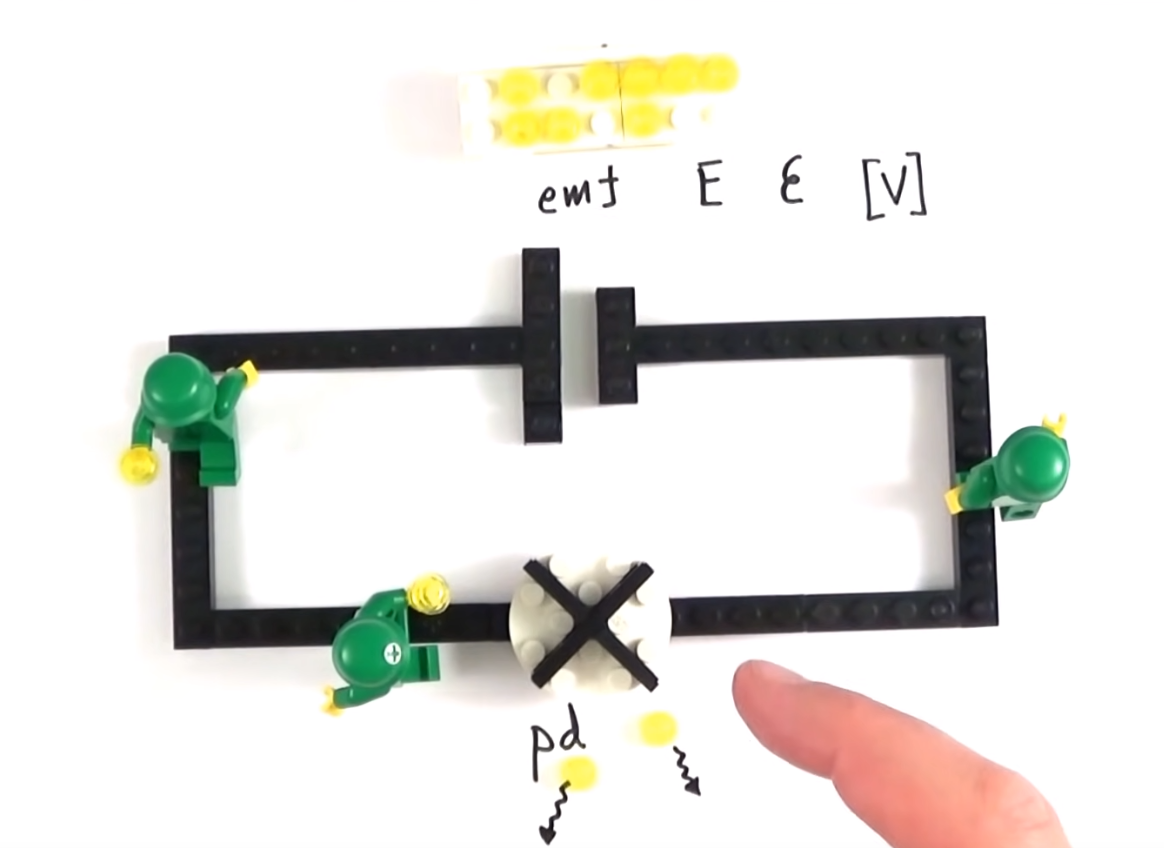 emf E ℰ [V]
pd